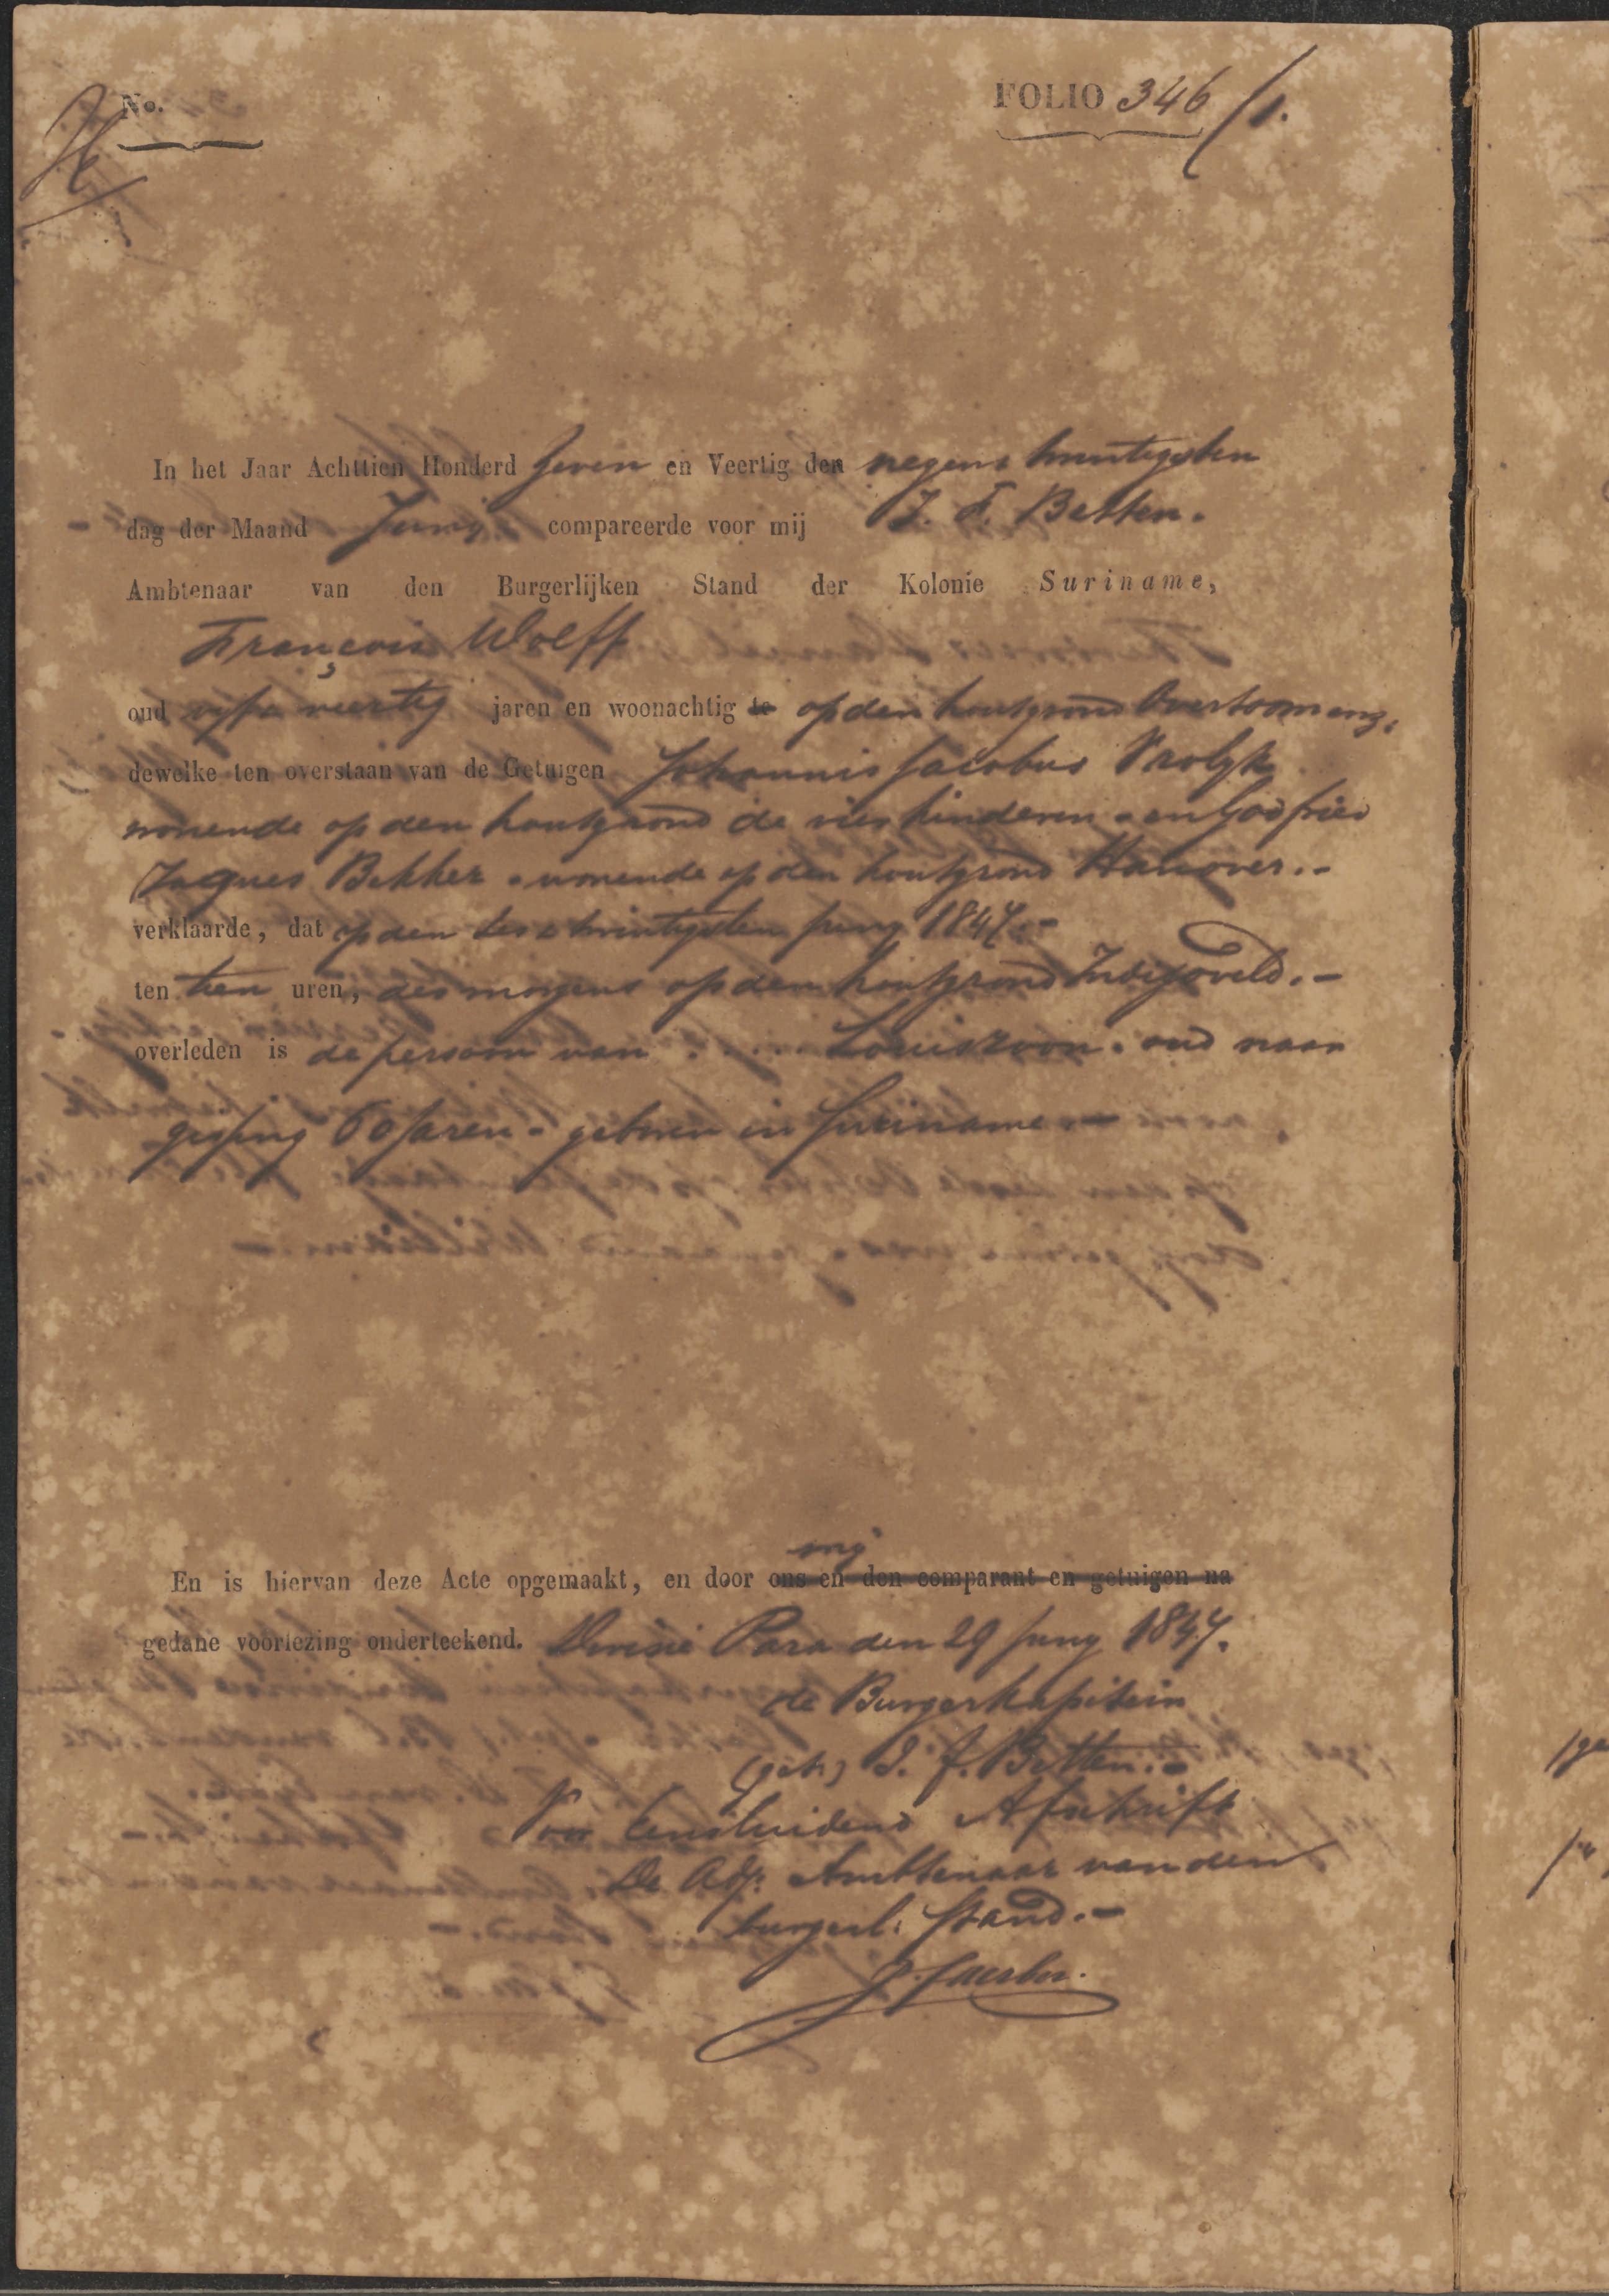 No.
FOLIO 346/1.
In het Jaar Achttien Honderd Zeven en Veertig den negen & twintigsten
dag der Maand Junij compareerde voor mij J. F. Betten.
Ambtenaar van den Burgerlijken Stand der Kolonie Suriname,
François Wolff
oud vijf en veertig jaren en woonachtig te op den houtgrond Overtoom enz.
dewelke ten overstaan van de Getuigen Johannis Jacobus Vrolyk
wonende op den houtgrond de vier kinderen - en Godfried
Jaques Bekker - wonende op den houtgrond Hanover. -
verklaarde, dat op den zes & twintigsten Juny 1847. -
ten tien uren, des morgens op den houtgrond
overleden is de persoon van . . . . . Louiszoon. oud naar
gissing 60 Jaren - geboren in Suriname -
En is hiervan deze Acte opgemaakt, en door ons en den comparant en getuigen na
mij
gedane voorlezing onderteekend. Divisie Para den 29 Juny 1847.
de Burgerkapitein
(get.) J. F. Betten. -
Voor Eensluidend Afschrift
De Adj: Ambtenaar van den
burgerl: Stand. -